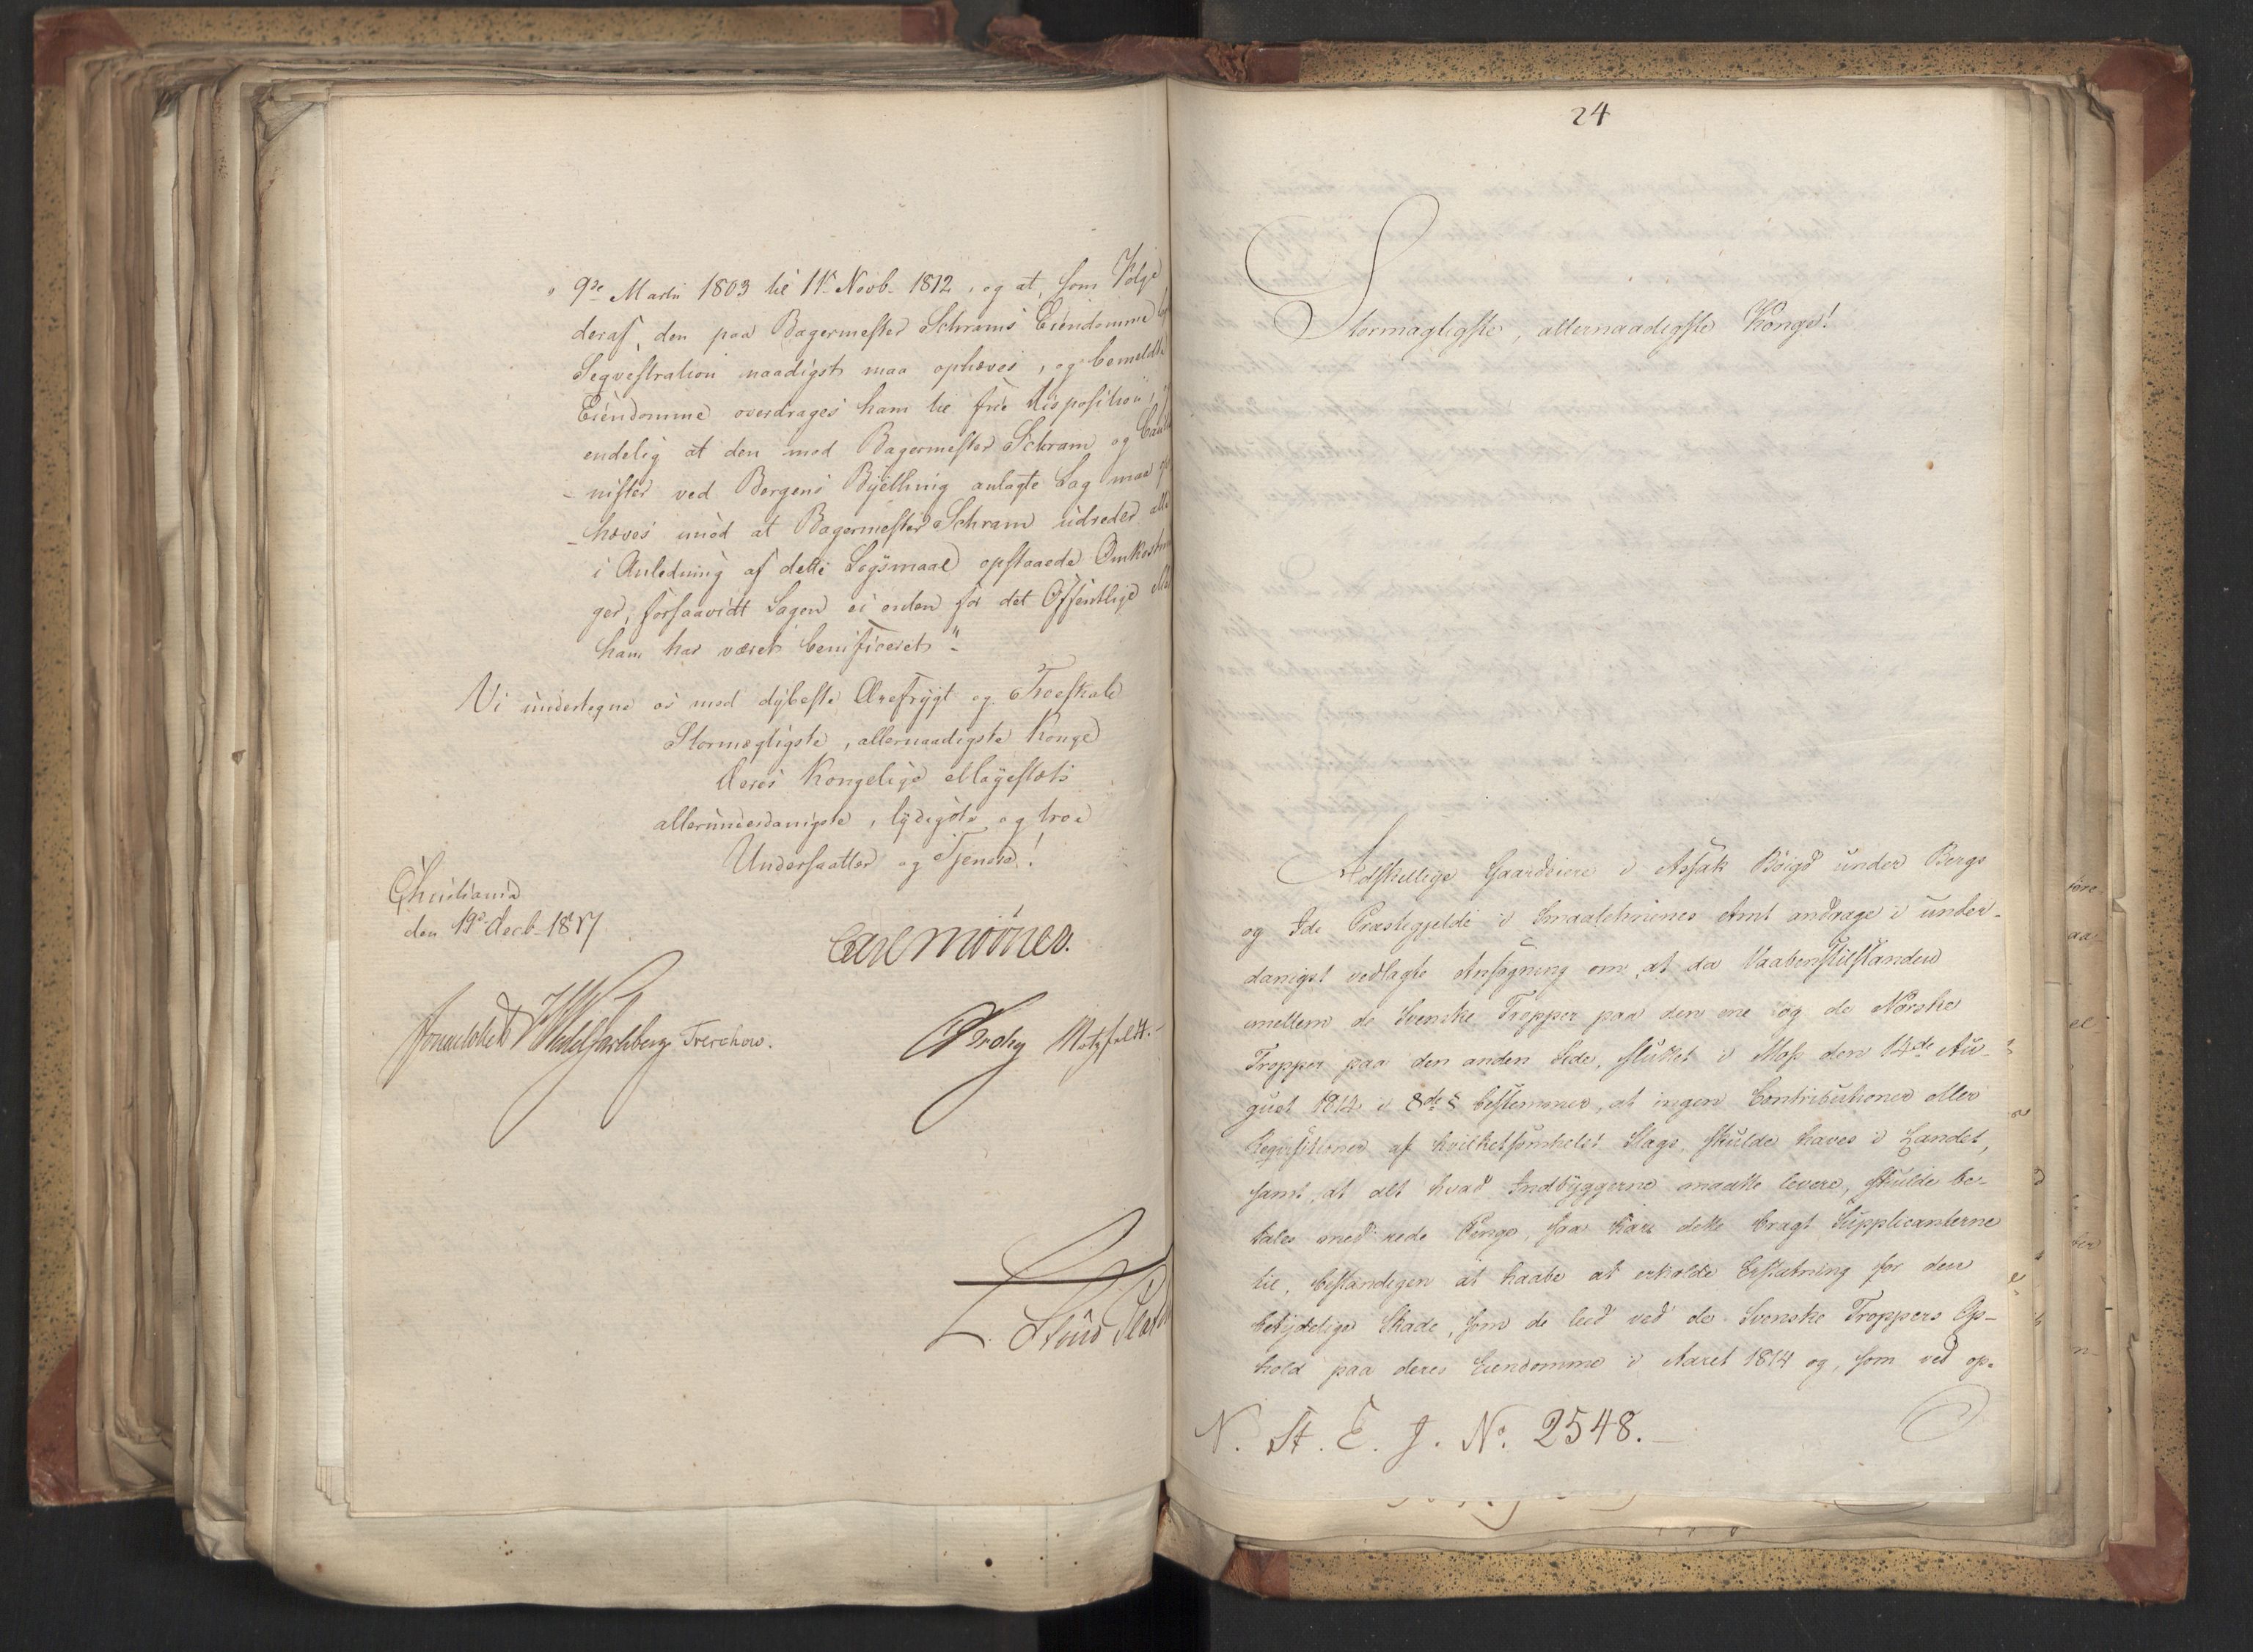 9de Martii 1803 til 11te Novb. 1812, og at, som Følge
deraf, den paa Bagermester Schrams Eiendomme
Seqvestration naadigst maa ophæves, og bemeldte
Eiendomme overdrages ham til frie Disposition,
endelig at den mod Bagermester Schram og
nister ved Bergens Byetting anlagte Sag maa
hæves imod at Bagermester Schram udreder alle
i Anledning af dette Søgsmaal opstaaede Omkostnin
ger, forsaavidt Sagen ei enten for det Offentlige
ham har været beneficeret".
Vi undertegne os med dybeste Ærefrygt og Troeskab
Stormægtigste, allernaadigste Konge
Deres Kongelige Majestæts
allerunderdanigste, lydigste og troe
Undersaatter og Tjenere!
Christiania
den 19de Decb. 1817
Carl Mörner.
Sommerhielm Wedel Jarlsberg Treschow.
Krohg Motzfeldt.
L. Stoud Platou
24
Stormægtigste, allernaadigste Konge!
Adskellige Gaardeiere i Assak Bøigd under Bergs
og Ide Præstegjelde i Smaalehnenes Amt andrage i under-
danigst vedlagte Ansøgning om, at da Vaabenstilstanden
imellem de Svenske Tropper paa den ene og de Norske
Tropper paa den anden Side, sluttet i Moss den 14de Au-
gust 1814 i 8de § bestemmer, at ingen Contributioner eller
Reqvisitioner af hvilketsomhelst Slags skulde hæves i Landet,
samt at alt hvad Indbyggerne maatte levere, skulde be-
tales med rede Penge, saa har dette bragt Supplicanterne
til, bestandigen at haabe at erholde Erstatning for den
betydelige Skade, som de leed ved de Svenske Troppers Op-
hold paa deres Eiendomme i Aaret 1814 og, som ved op-
N. St. E. J. No. 2548.